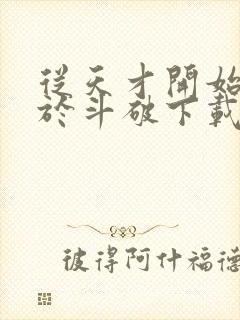 從天才開始
於斗破下載
彼得阿什福德